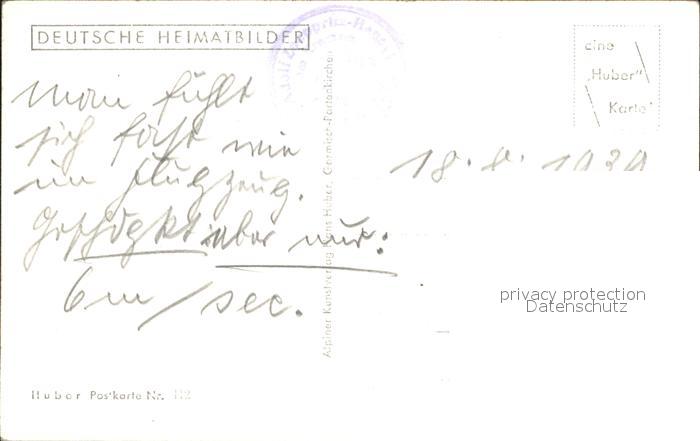 DEUTSCHE HEIMATBILDER
eine
„Huber"
Karte
Man fühlt
sich fast wie
im Flugzeug.
aber nur:
6m/sec.
18. 8. 1939
Alpiner Kunstverlag Hans Huber, Garmisch-Partenkirchen
privacy protection
Datenschutz
Huber Postkarte Nr. 112